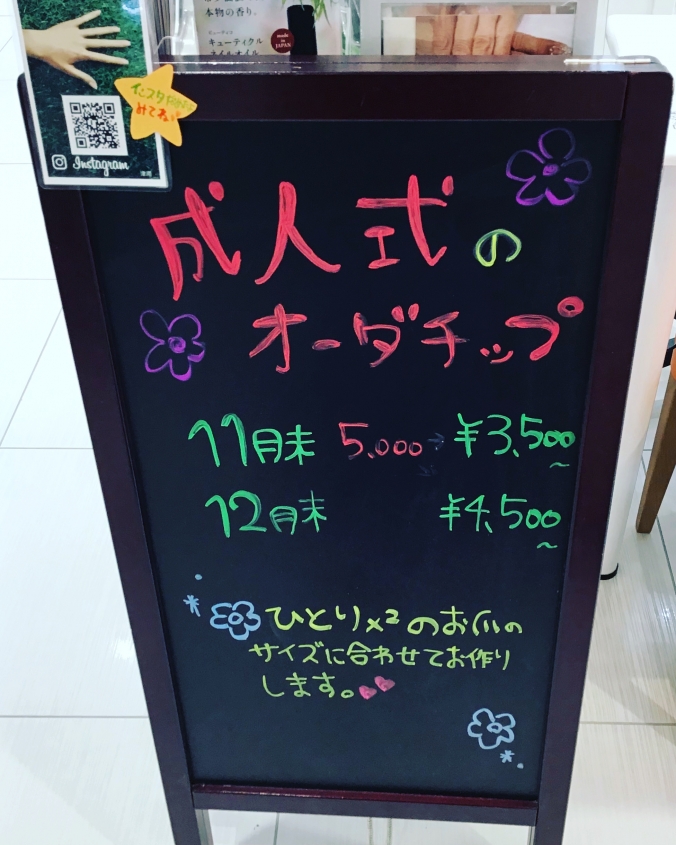 本物の香り。
キューティクル
ネイルオイル
made in
JAPAN
みてね
Instagram
成人式の
オーダチップ
11月末 5.000 → ¥3,500~
12月末 ¥4,500~
ひとりx²のお爪の
サイズに合わせてお作り
します。